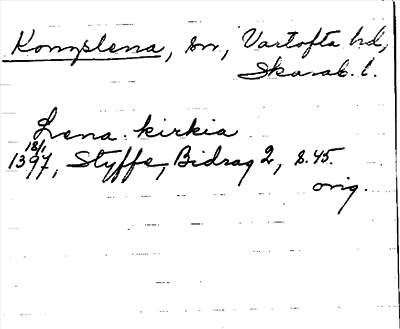 Kongslena, sn, Vartofta hd,
Skarab. l.
Lena kirkia
18/1
1397, Styffe, Bidrag 2, s. 45.
orig.